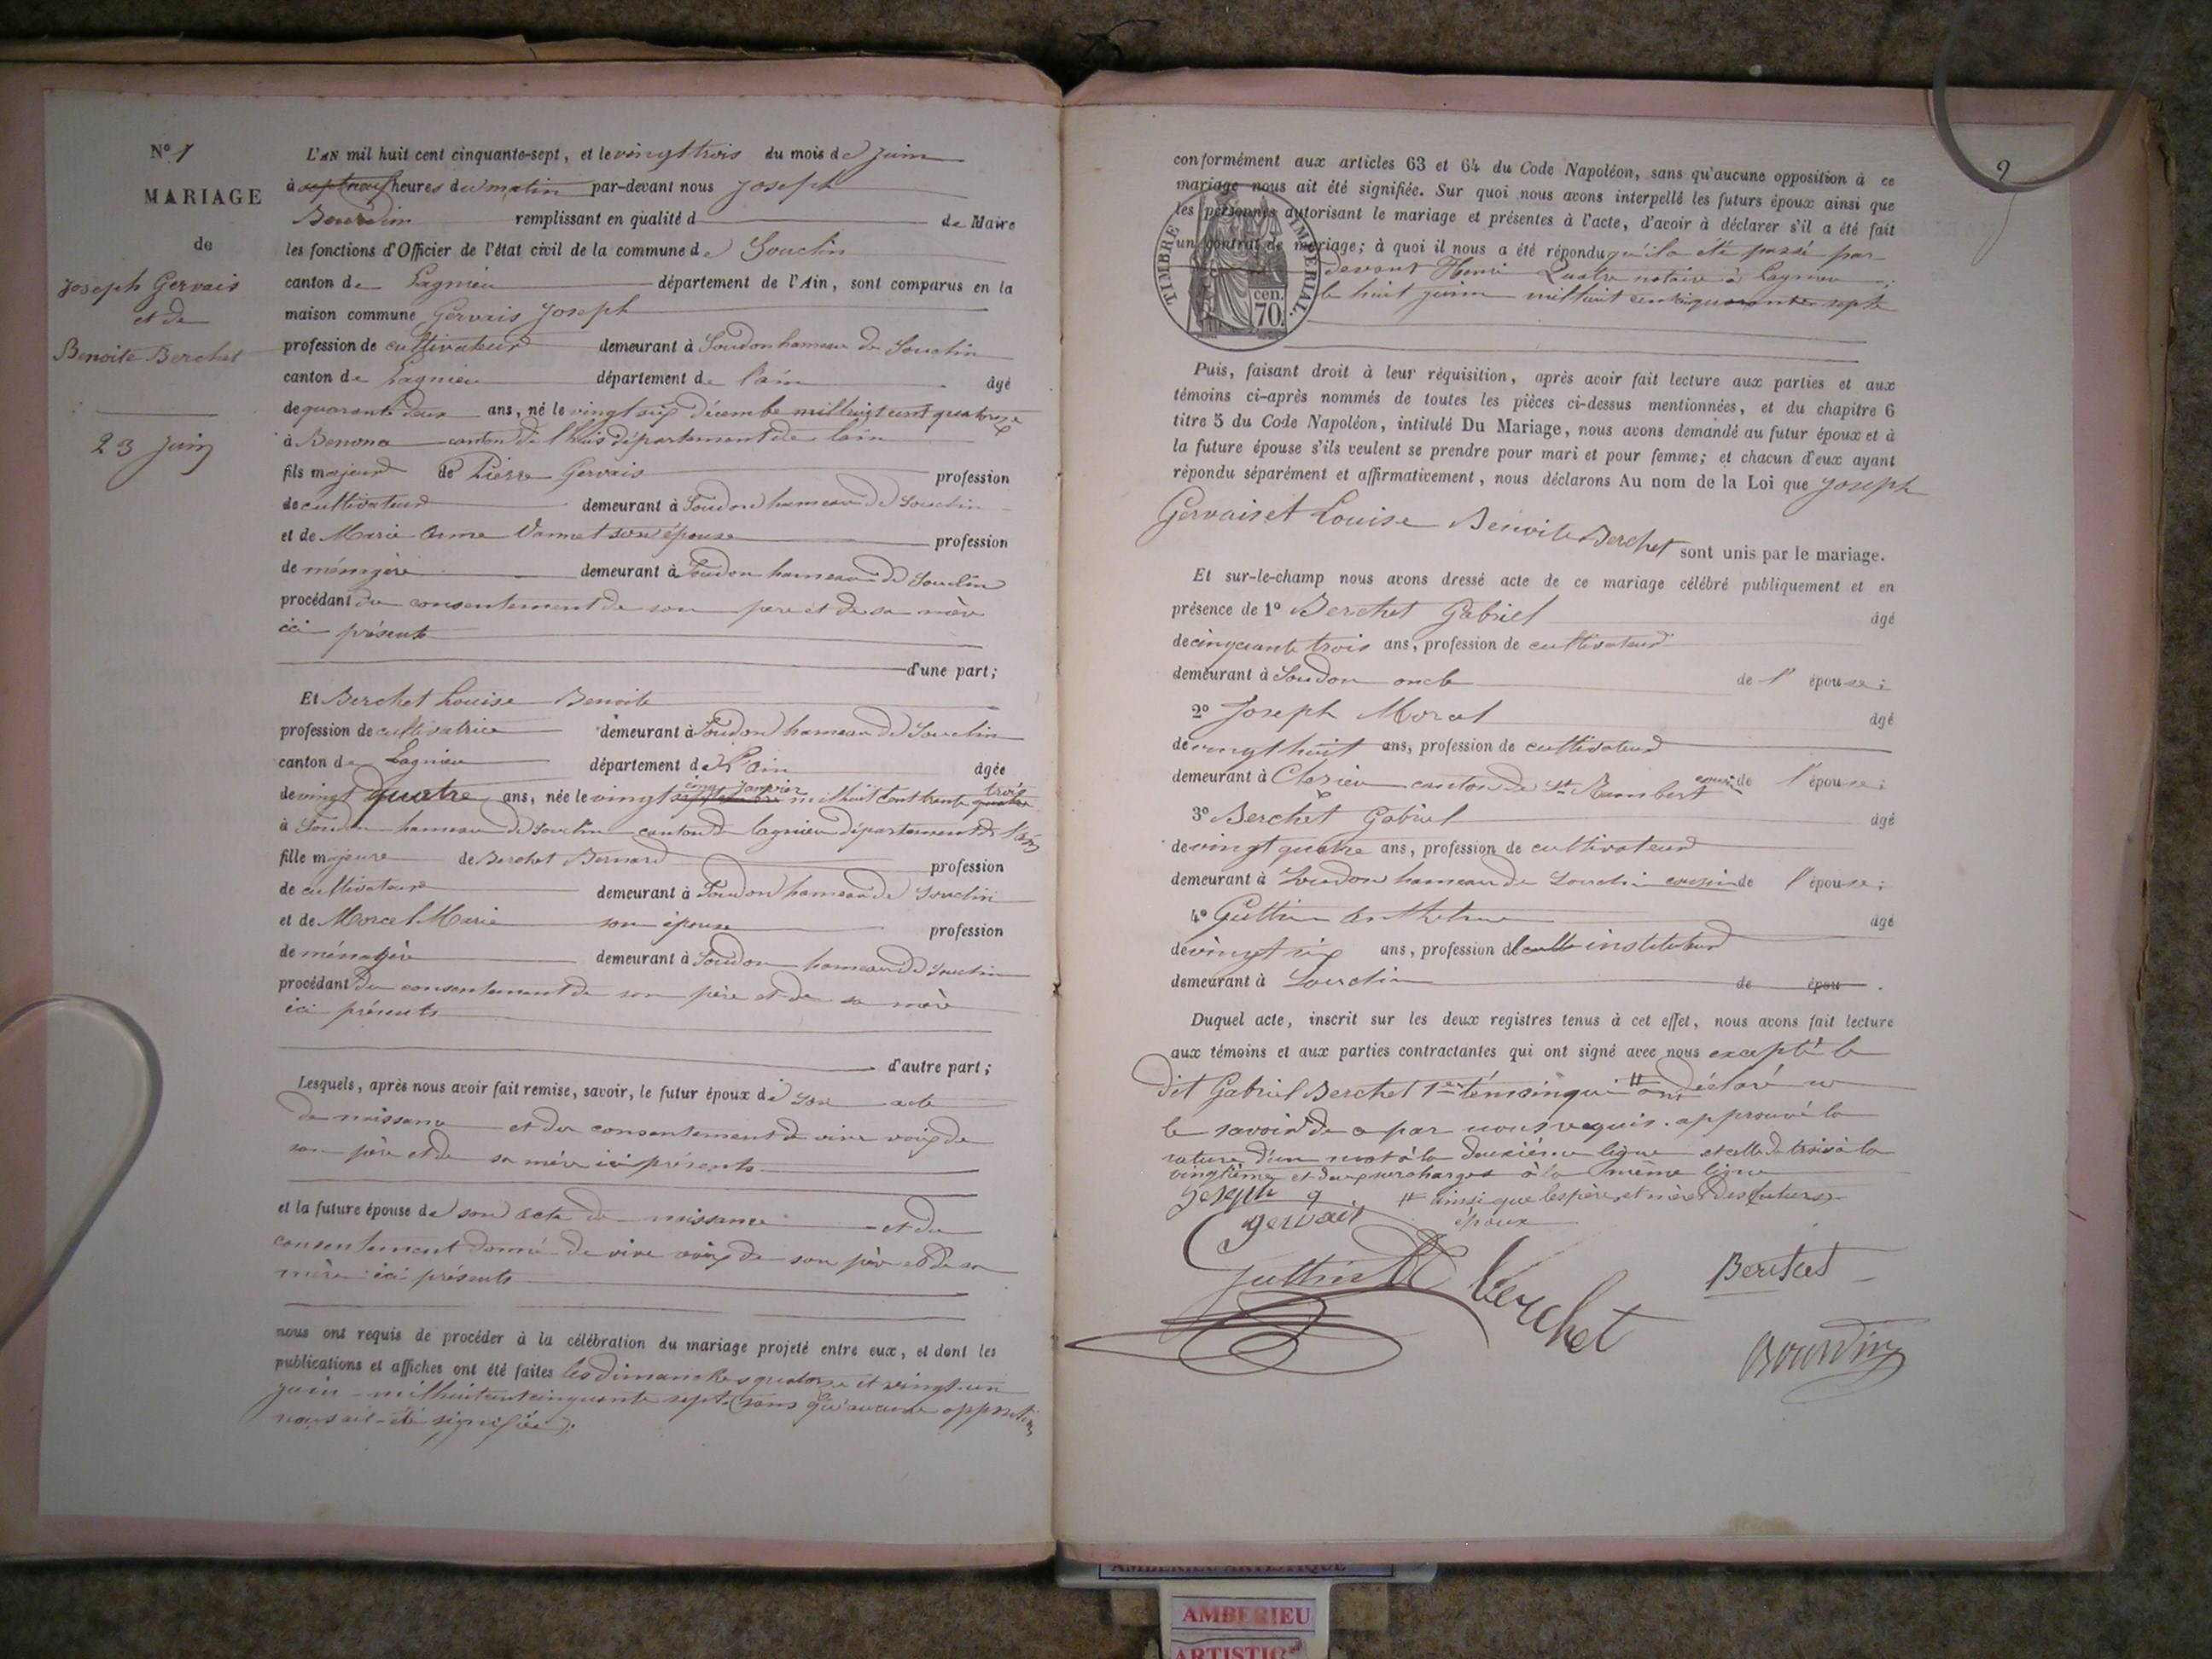 N° 1
MARIAGE
de
Joseph Gervais
et de
Benoite Berchet
23 Juin
L'AN mil huit cent cinquante-sept, et le vingt trois du mois de Juin
à sept neuf heures du matin par-devant nous Joseph
Bourdin remplissant en qualité d de Maire
les fonctions d'Officier de l'état civil de la commune de Souclin
canton de Lagnieu département de l'Ain, sont comparus en la
maison commune Gervais Joseph
profession de cultivateur demeurant à Soudon hameau de Souclin
canton de Lagnieu département de l'ain âgé
de quarante deux ans, né le vingt six décembre mil huit cent quatorze
à Benona canton de l'huis département de l'ain
fils majeur de Pierre Gervais profession
de cultivateur demeurant à Soudon hameau de Souclin
et de Marie Anne Vannet son épouse profession
de ménagère demeurant à Soudon hameau de Souclin
procédant du consentement de son père et de sa mère
ici présents
d'une part;
Et Berchet Louise Benoite
profession de cultivatrice demeurant à Soudon hameau de Souclin
canton de Lagnieu département de l'Ain âgée
de vingt quatre ans, née le vingt septembre cinq janvier mil huit cent trente quatre trois
à Soudon hameau de Souclin canton de lagnieu département de l'ain
fille majeure de Berchet Bernard profession
de cultivateur demeurant à Soudon hameau de Souclin
et de Morcel Marie son épouse profession
de ménagère demeurant à Soudon hameau de Souclin
procédant du consentement de son père et de sa mère
ici présents
d'autre part;
Lesquels, après nous avoir fait remise, savoir, le futur époux de son acte
de naissance et du consentement de vive voix de
son père et de sa mère ici présents
et la future épouse de son acte de naissance et du
consentement donné de vive voix de son père et de sa
mère ici présents
nous ont requis de procéder à la célébration du mariage projeté entre eux, et dont les
publications et affiches ont été faites les dimanches quatorze et vingt-un
juin mil huit cent cinquante sept (sans qu'aucune opposition
nous ait été signifiée).
2
conformément aux articles 63 et 64 du Code Napoléon, sans qu'aucune opposition à ce
mariage nous ait été signifiée. Sur quoi nous avons interpellé les futurs époux ainsi que
les personnes autorisant le mariage et présentes à l'acte, d'avoir à déclarer s'il a été fait
un contrat de mariage; à quoi il nous a été répondu qu'il a été passé par
devant Henri Quatre notaire à Lagnieu
le huit juin mil huit cent cinquante sept
TIMBRE IMPERIAL.
70 cen.
Puis, faisant droit à leur réquisition, après avoir fait lecture aux parties et aux
témoins ci-après nommés de toutes les pièces ci-dessus mentionnées, et du chapitre 6
titre 5 du Code Napoléon, intitulé Du Mariage, nous avons demandé au futur époux et à
la future épouse s'ils veulent se prendre pour mari et pour femme; et chacun d'eux ayant
répondu séparément et affirmativement, nous déclarons Au nom de la Loi que Joseph
Gervais et Louise Benoite Berchet sont unis par le mariage.
Et sur-le-champ nous avons dressé acte de ce mariage célébré publiquement et en
présence de 1° Berchet Gabriel âgé
de cinquante trois ans, profession de cultivateur
demeurant à Soudon oncle de l'épouse;
2° Joseph Morat âgé
de vingt huit ans, profession de cultivateur
demeurant à Clezieu canton de St Rambert cousin de l'épouse;
3° Berchet Gabriel âgé
de vingt quatre ans, profession de cultivateur
demeurant à Soudon hameau de Souclin cousin de l'épouse;
4° Guttin Anthelme âgé
de vingt six ans, profession de instituteur
demeurant à Souclin de épou .
Duquel acte, inscrit sur les deux registres tenus à cet effet, nous avons fait lecture
aux témoins et aux parties contractantes qui ont signé avec nous excepté le
dit Gabriel Berchet 1er témoin qui # ont déclaré ne
le savoir de ce par nous requis. approuvé la
rature d'un mot à la deuxième ligne et celle de trois à la
vingtième et deux surcharges à la même ligne
# ainsi que les père et mère des futurs
époux
Joseph g
gervais
Guttin
Berchet
Berchet
Bourdin
AMBERIEU ARTISTIQUE
AMBERIEU
ARTISTIQ